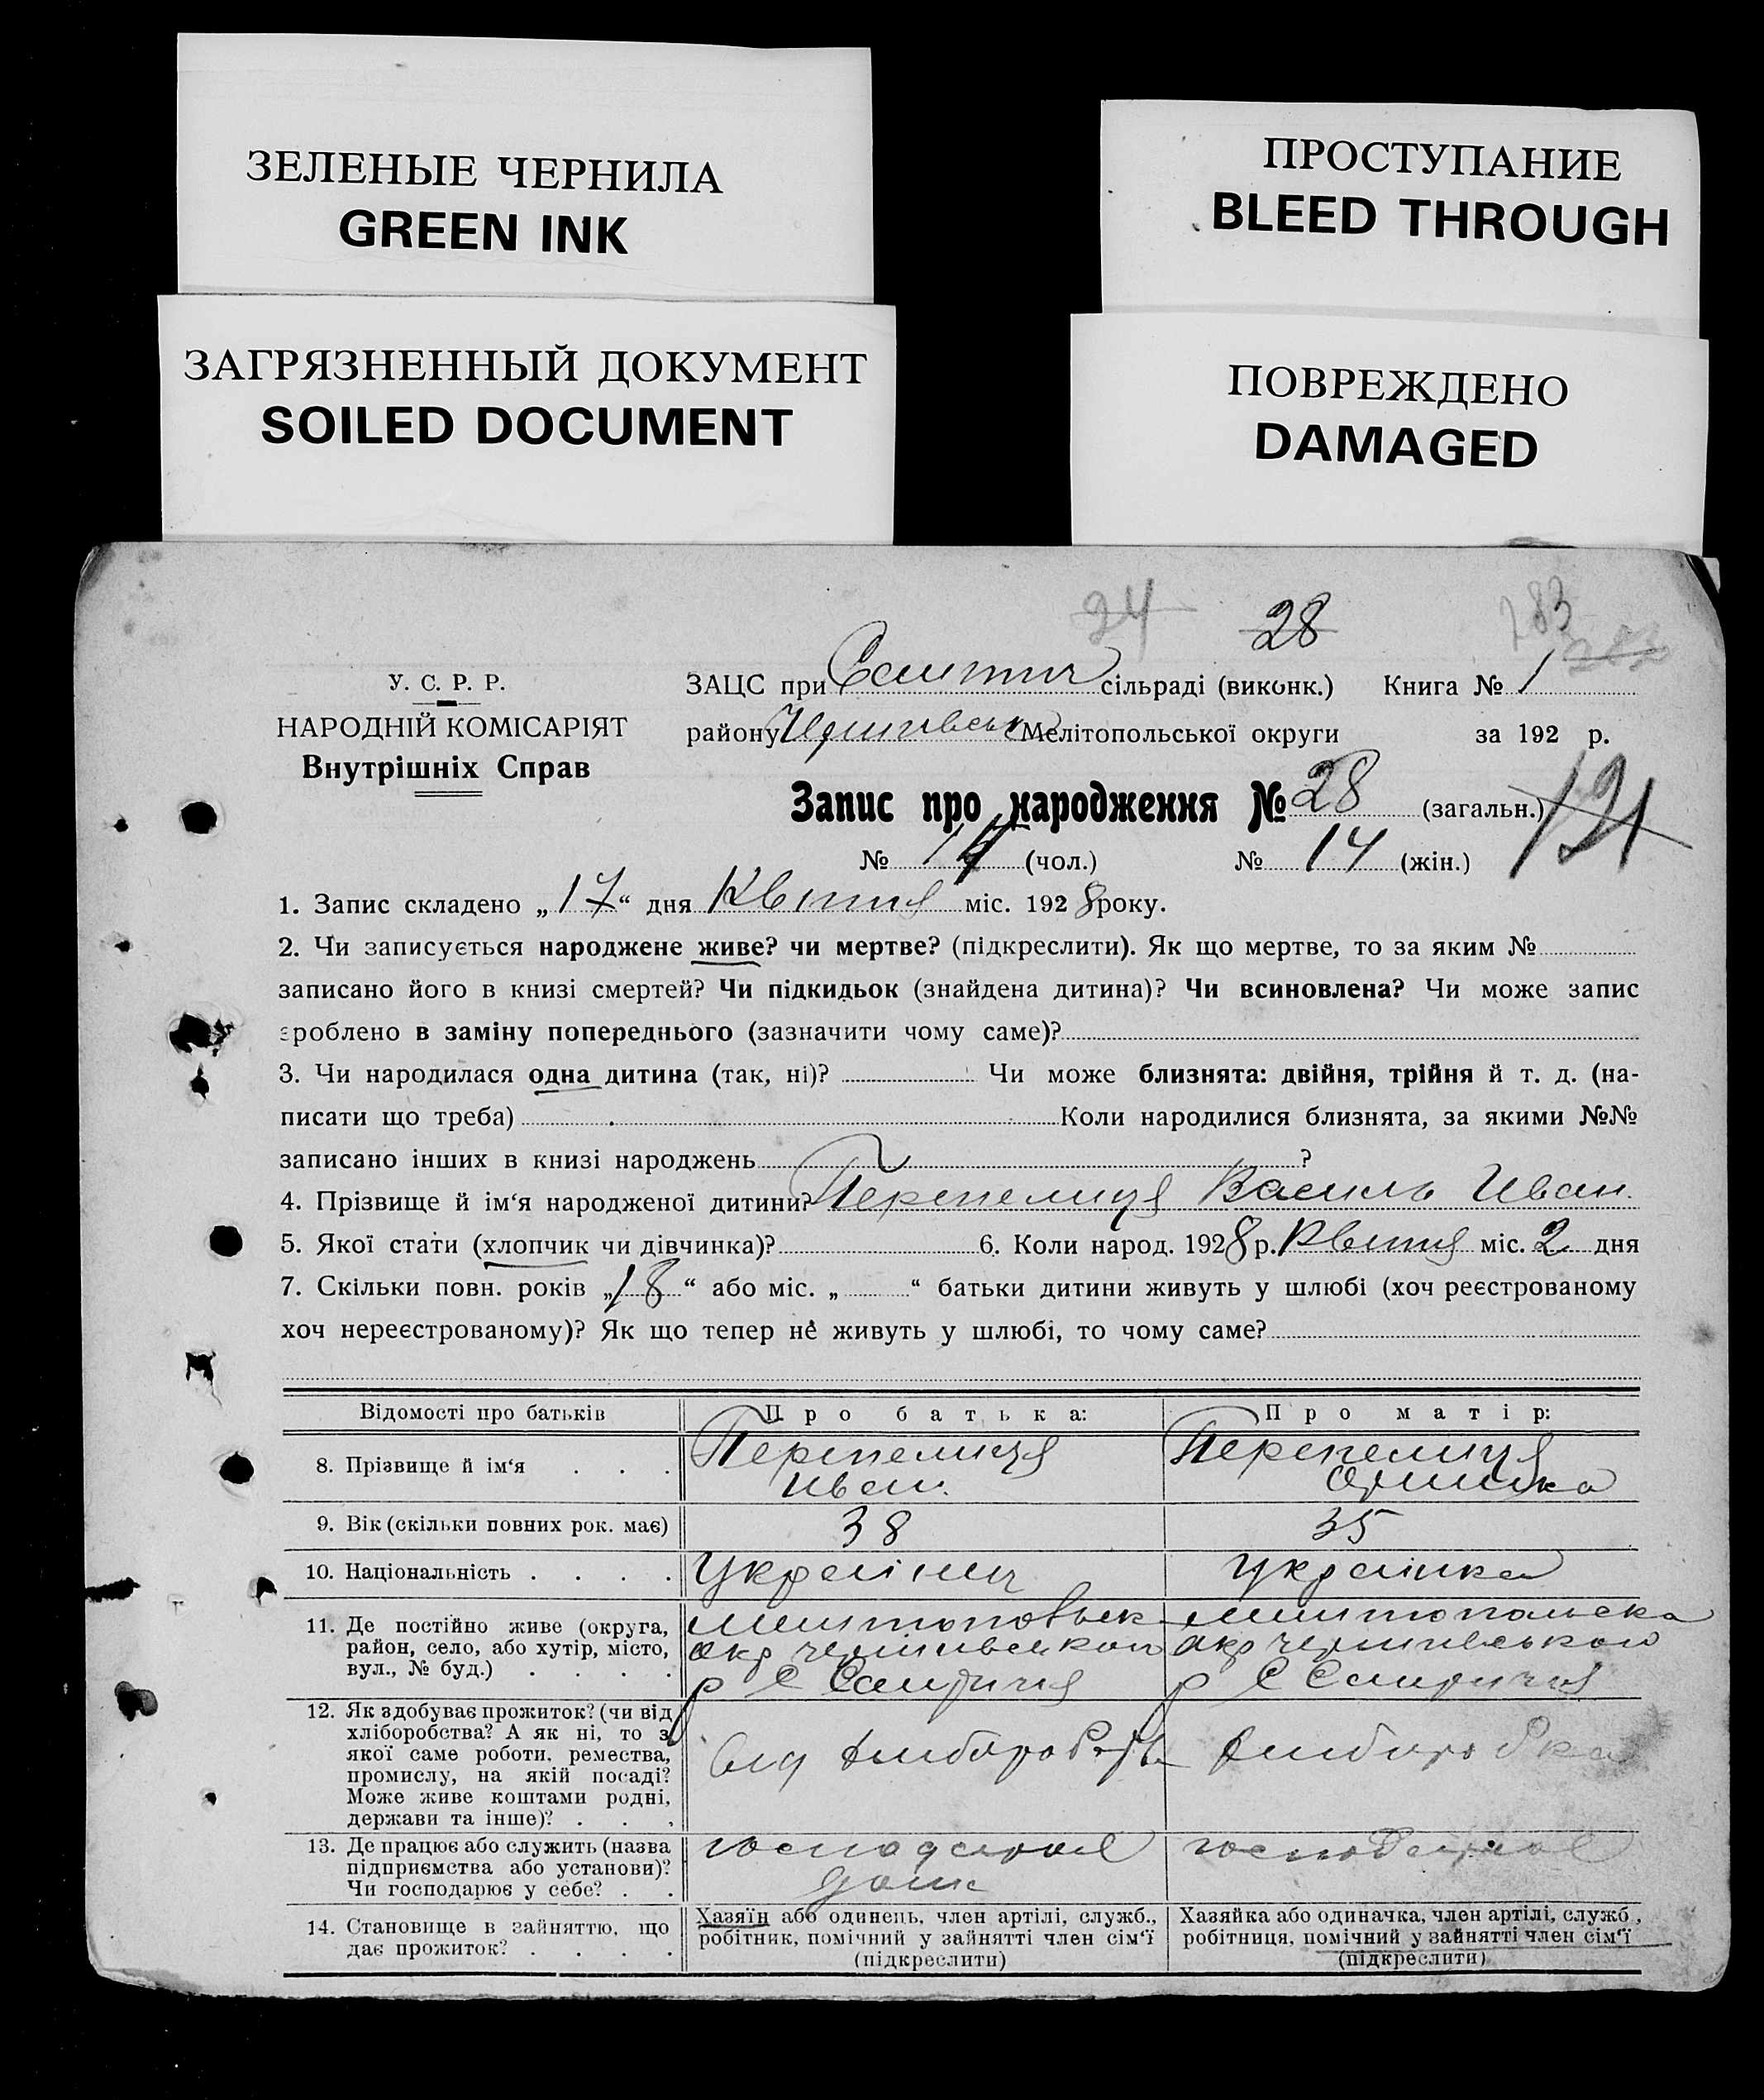 ЗЕЛЕНЫЕ ЧЕРНИЛА
GREEN INK
ПРОСТУПАНИЕ
BLEED THROUGH
ЗАГРЯЗНЕННЫЙ ДОКУМЕНТ
SOILED DOCUMENT
ПОВРЕЖДЕНО
DAMAGED
24 28 283
У. С. Р. Р.
НАРОДНІЙ КОМІСАРІЯТ
Внутрішніх Справ
ЗАЦС при сільраді (виконк.) Книга № 1
району Мелітопольської округи за 192 р.
Запис про народження № 28 (загальн.) 121
№ (чол.) № 14 (жін.)
1. Запис складено „17“ дня Квітня міс. 1928 року.
2. Чи записується народжене живе? чи мертве? (підкреслити). Як що мертве, то за яким №
записано його в книзі смертей? Чи підкидьок (знайдена дитина)? Чи всиновлена? Чи може запис
зроблено в заміну попереднього (зазначити чому саме)?
3. Чи народилася одна дитина (так, ні)? Чи може близнята: двійня, трійня й т. д. (на-
писати що треба) Коли народилися близнята, за якими №№
записано інших в книзі народжень ?
4. Прізвище й ім‘я народженої дитини? Перепелиця Василь Иван.
5. Якої стати (хлопчик чи дівчинка)? 6. Коли народ. 1928 р. Квітня міс. 2 дня
7. Скільки повн. років „18“ або міс. „ “ батьки дитини живуть у шлюбі (хоч реєстрованому
хоч нереєстрованому)? Як що тепер не живуть у шлюбі, то чому саме?
Відомості про батьків Про батька: Про матір:
8. Прізвище й ім‘я . . . Перепелиця Иван. Перепелиця Оришка
9. Вік (скільки повних рок. має) 38 35
10. Національність . . . . Українец українка
11. Де постійно живе (округа,
район, село, або хутір, місто,
вул., № буд.) . . . .
Мелитопольск Мелитопольска
окр чернігівського окр чернигивського
р С р С
12. Як здобуває прожиток? (чи від
хліборобства? А як ні, то з
якої саме роботи, ремества,
промислу, на якій посаді?
Може живе коштами родні,
держави та інше)? . . .
від хлиборобства хлиборобка
13. Де працює або служить (назва
підприємства або установи)?
Чи господарює у себе? . .
господарює
дома
господарює
14. Становище в зайняттю, що
дає прожиток? . . . .
Хазяїн або одинець, член артілі, служб.,
робітник, помічний у зайнятті член сім‘ї
(підкреслити)
Хазяйка або одиначка, член артілі, служб.,
робітниця, помічний у зайнятті член сім‘ї
(підкреслити)